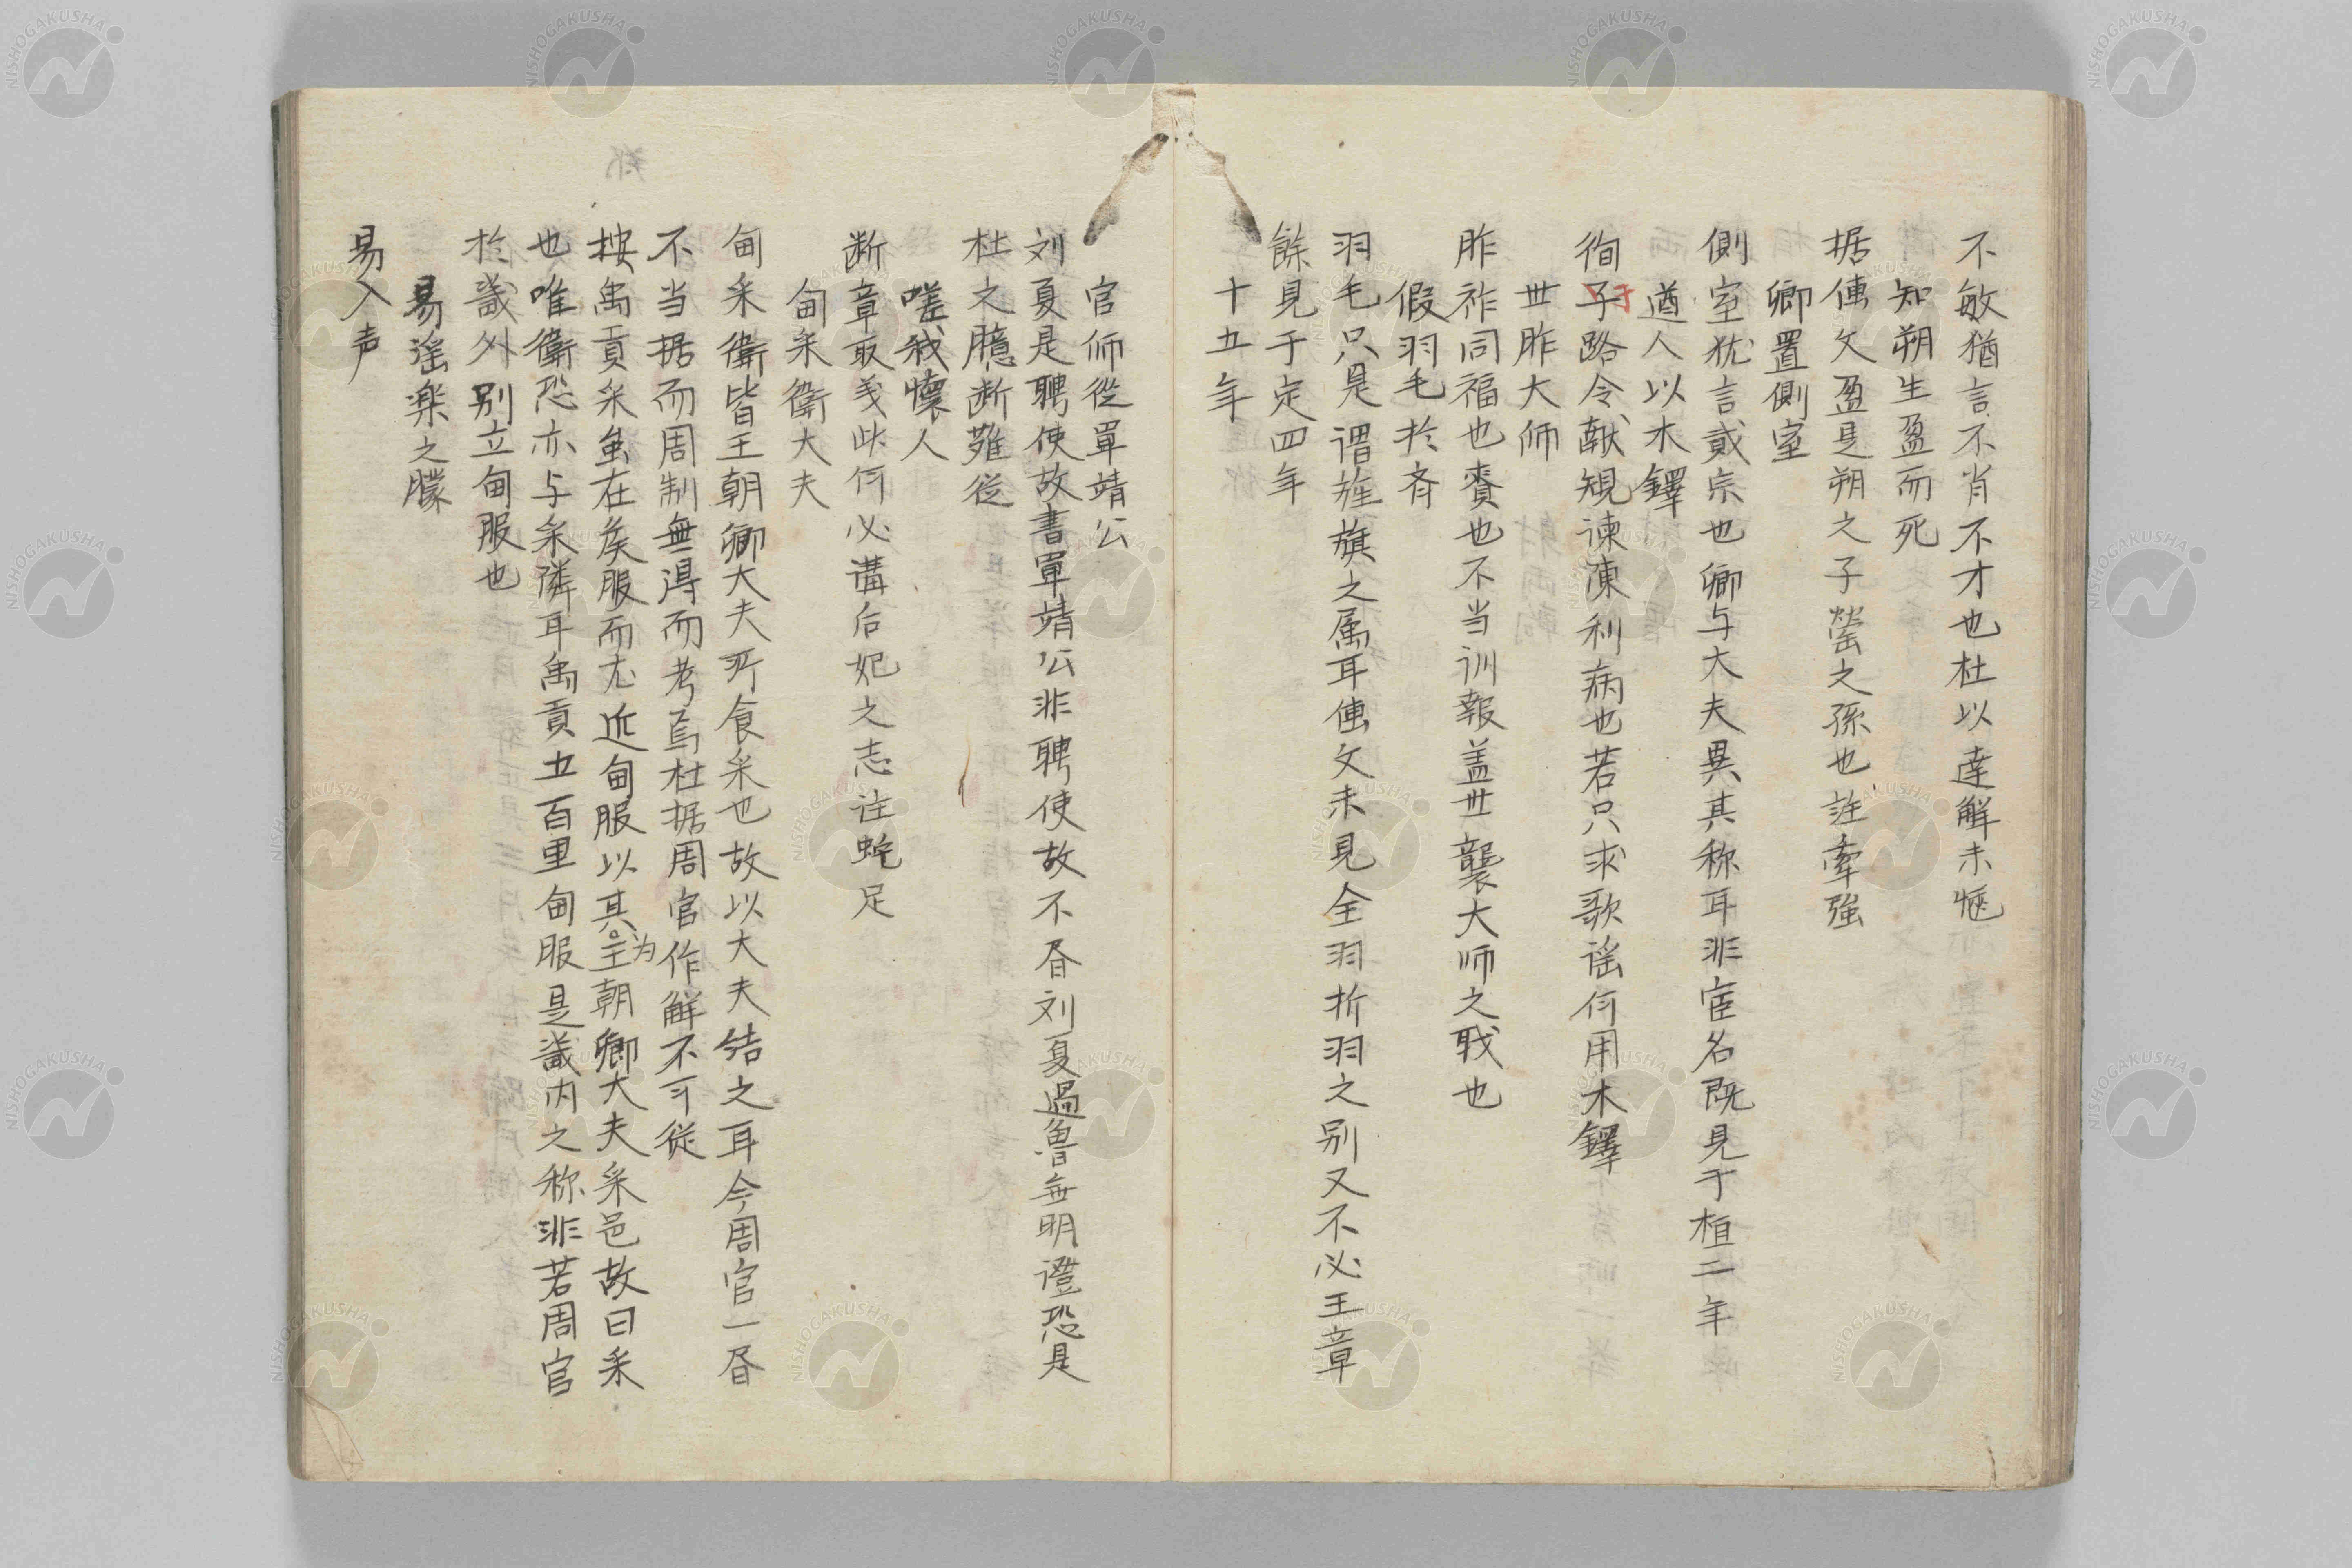 不敏猶言不肖不才也杜以達解未愜
知朔生盈而死
据傳文盈是朔之子罃之孫也註牽強
卿置側室
側室犹言貳宗也卿与大夫異其称耳非宦名既見于桓二年
遒人以木鐸
徇于路令献規諫陳利病也若只求歌謡何用木鐸
丗胙大师
胙祚同福也賚也不当训報盖丗襲大师之职也
假羽毛於斉
羽毛只是谓旌旗之属耳傳文未見全羽折羽之别又不必王章
餘見于定四年
十五年
官师從單靖公
刘夏是聘使故書單靖公非聘使故不昏刘夏過魯無明證恐是
杜之臆断難從
嗟我懐人
断章取義此何必講后妃之志注蛇足
甸采衛大夫
甸采衛皆王朝卿大夫所食采也故以大夫結之耳今周官一昏
不当据而周制無得而考焉杜据周官作解不可従
按禹貢采虽在矦服而尤近甸服以其为王朝卿大夫采邑故曰采
也唯衛恐亦与采隣耳禹貢五百里甸服是畿内之称非若周官
於畿外别立甸服也
易淫楽之矇
易入声